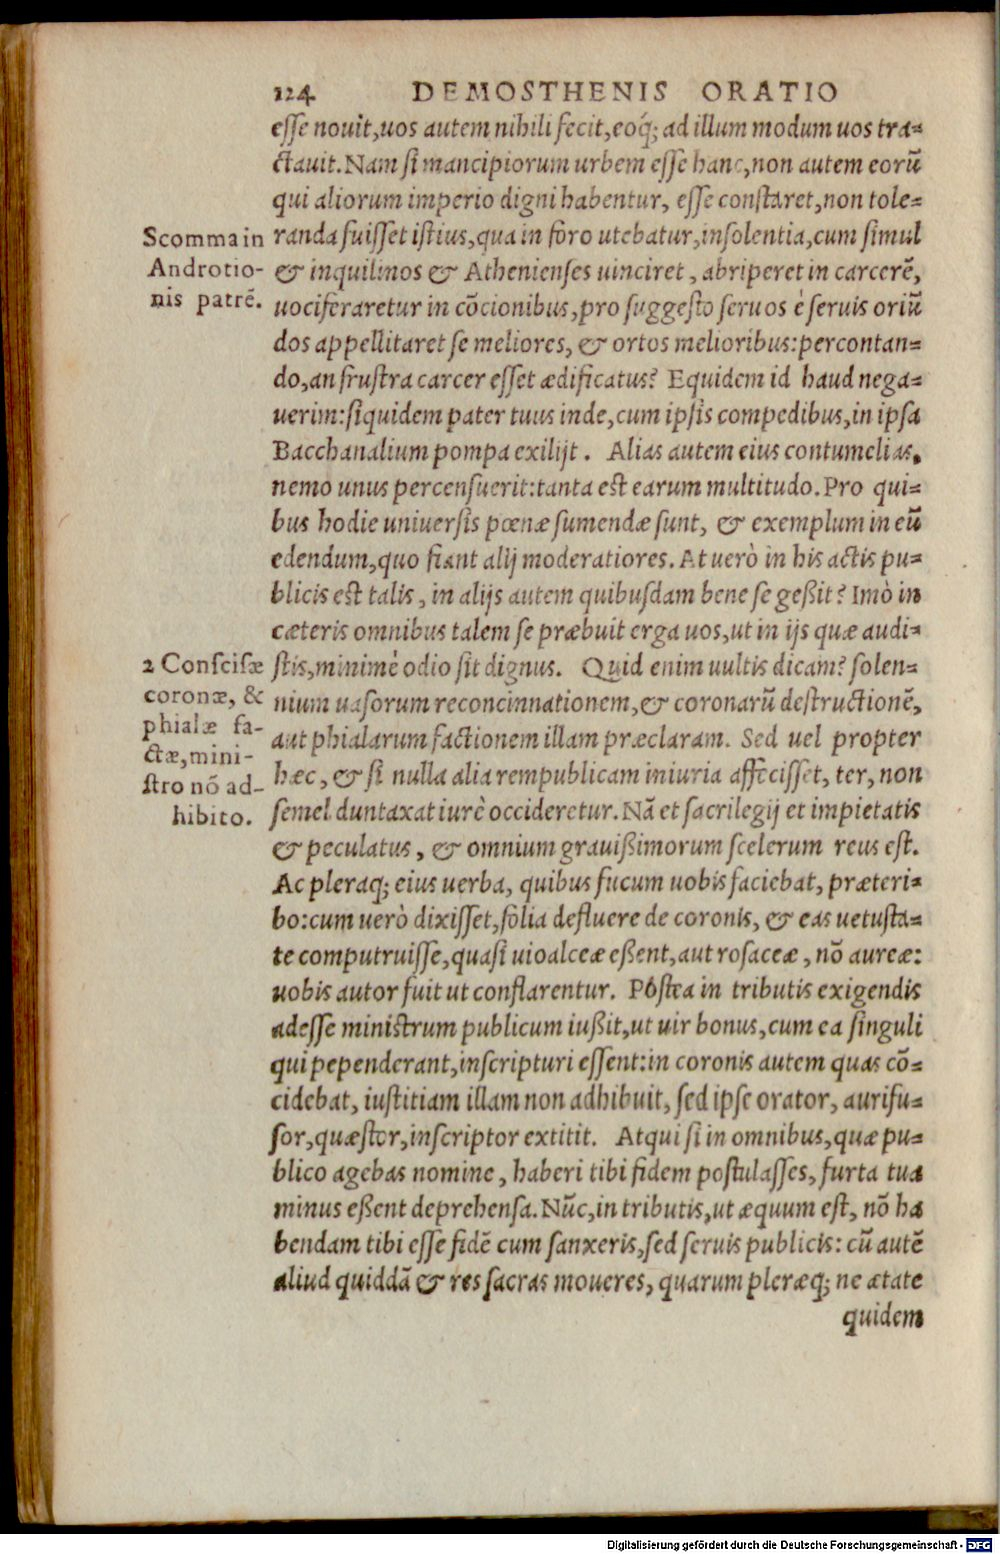 124 DEMOSTHENIS ORATIO
esse nouit, uos autem nihili fecit, eoq́; ad illum modum uos tra=
ctauit. Nam si mancipiorum urbem esse hanc, non autem eorũ
qui aliorum imperio digni habentur, esse constaret, non tole=
randa fuisset istius, qua in foro utebatur, insolentia, cum simul
& inquilinos & Athenienses uinciret, abriperet in carcerẽ,
uociferaretur in cõcionibus, pro suggesto seruos è seruis oriũ
dos appellitaret se meliores, & ortos melioribus: percontan=
do, an frustra carcer esset ædificatus? Equidem id haud nega=
uerim: siquidem pater tuus inde, cum ipsis compedibus, in ipsa
Bacchanalium pompa exilijt. Alias autem eius contumelias,
nemo unus percensuerit: tanta est earum multitudo. Pro qui=
bus hodie uniuersis pœnæ sumendæ sunt, & exemplum in eũ
edendum, quo fiant alij moderatiores. At uerò in his actis pu=
blicis est talis, in alijs autem quibusdam bene se geßit? Imò in
cæteris omnibus talem se præbuit erga uos, ut in ijs quæ audi=
stis, minimè odio sit dignus. Quid enim uultis dicam? solen=
nium uasorum reconcinnationem, & coronarũ destructionẽ,
aut phialarum factionem illam præclaram. Sed uel propter
hæc, & si nulla alia rempublicam iniuria affecisset, ter, non
semel duntaxat iurè occideretur. Nã et sacrilegij et impietatis
& peculatus, & omnium grauißimorum scelerum reus est.
Ac pleraq; eius uerba, quibus fucum uobis faciebat, præteri=
bo: cum uerò dixisset, folia defluere de coronis, & eas uetusta=
te computruisse, quasi uioalceæ eßent, aut rosaceæ, nõ aureæ:
uobis autor fuit ut conflarentur. Póstea in tributis exigendis
adesse ministrum publicum iußit, ut uir bonus, cum ea singuli
qui pependerant, inscripturi essent: in coronis autem quas cõ=
cidebat, iustitiam illam non adhibuit, sed ipse orator, aurifu=
sor, quæstor, inscriptor extitit. Atqui si in omnibus, quæ pu=
blico agebas nomine, haberi tibi fidem postulasses, furta tua
minus eßent deprehensa. Nũc, in tributis, ut æquum est, nõ ha
bendam tibi esse fidẽ cum sanxeris, sed seruis publicis: cũ autẽ
aliud quiddã & res sacras moueres, quarum pleræq; ne ætate
quidem
Scomma in
Androtio-
nis patrẽ.
2 Conscisæ
coronæ, &
phialæ fa-
ctæ, mini-
stro nõ ad-
hibito.
Digitalisierung gefördert durch die Deutsche Forschungsgemeinschaft - DFG